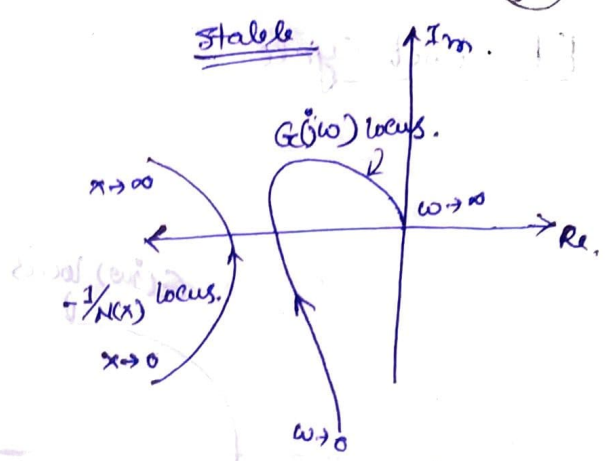 Stable.
Im.
G(jω) locus.
x→∞
ω→∞
Re.
-1/N(x) locus.
x→0
ω→0